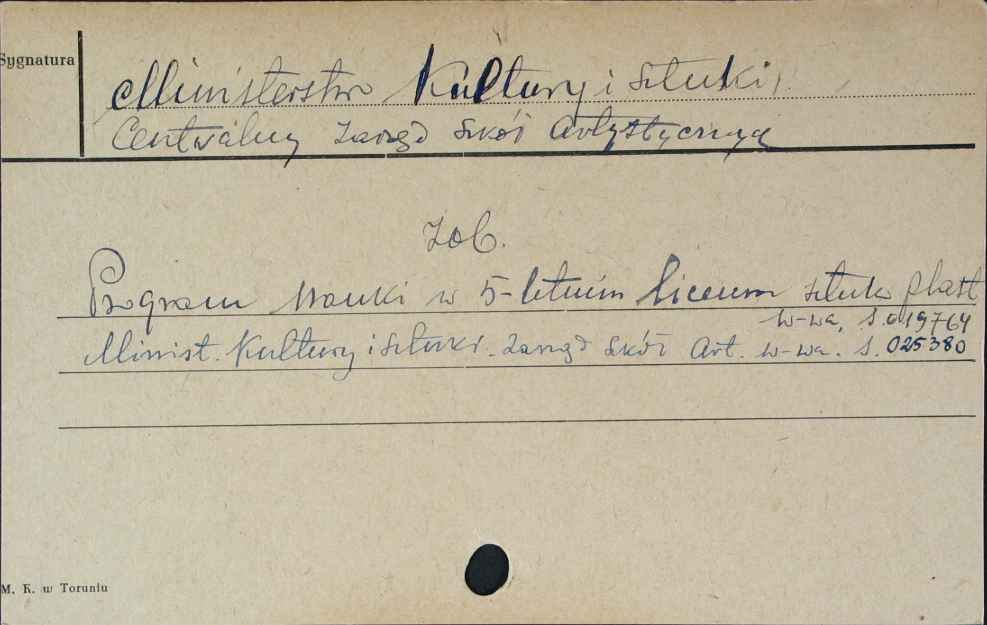 Sygnatura
Ministerstwo Kultury i Sztuki,
Centralny Zarząd Szkół Artystyczny
Zob.
Program Nauki w 5-letnim liceum sztuk plast
W-wa, S. 019764
Minist. Kultury i Sztuki. Zarząd Szkół Art. W-wa. S. 025380
M. K. w Toruniu